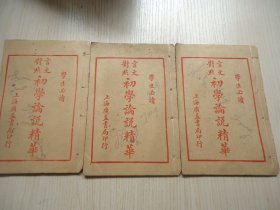 學生必讀
言文對照
初學論說精華
上海廣益書局印行
學生必讀
言文對照
初學論說精華
上海廣益書局印行
學生必讀
言文對照
初學論說精華
上海廣益書局印行